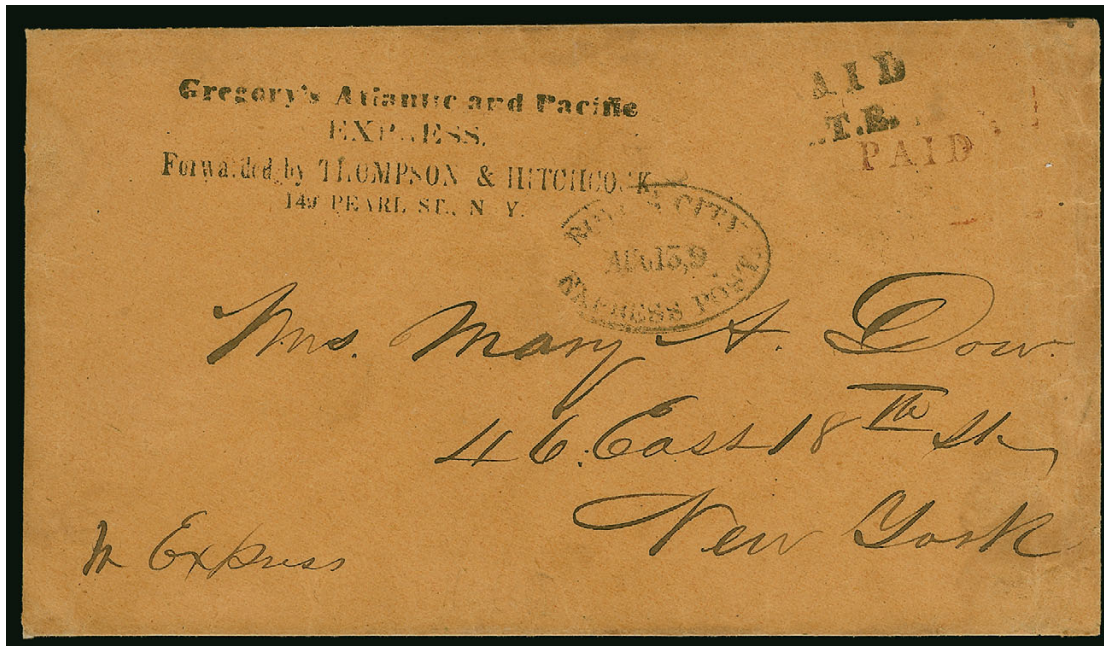 Gregory's Atlantic and Pacific
EXPRESS.
Forwarded by THOMPSON & HITCHCOCK
149 PEARL ST., N. Y.
AID
PAID
CITY
AUG 15, 9
EXPRESS POST.
Mrs. Mary A. Dow
46. East 18th St,
New York
Express